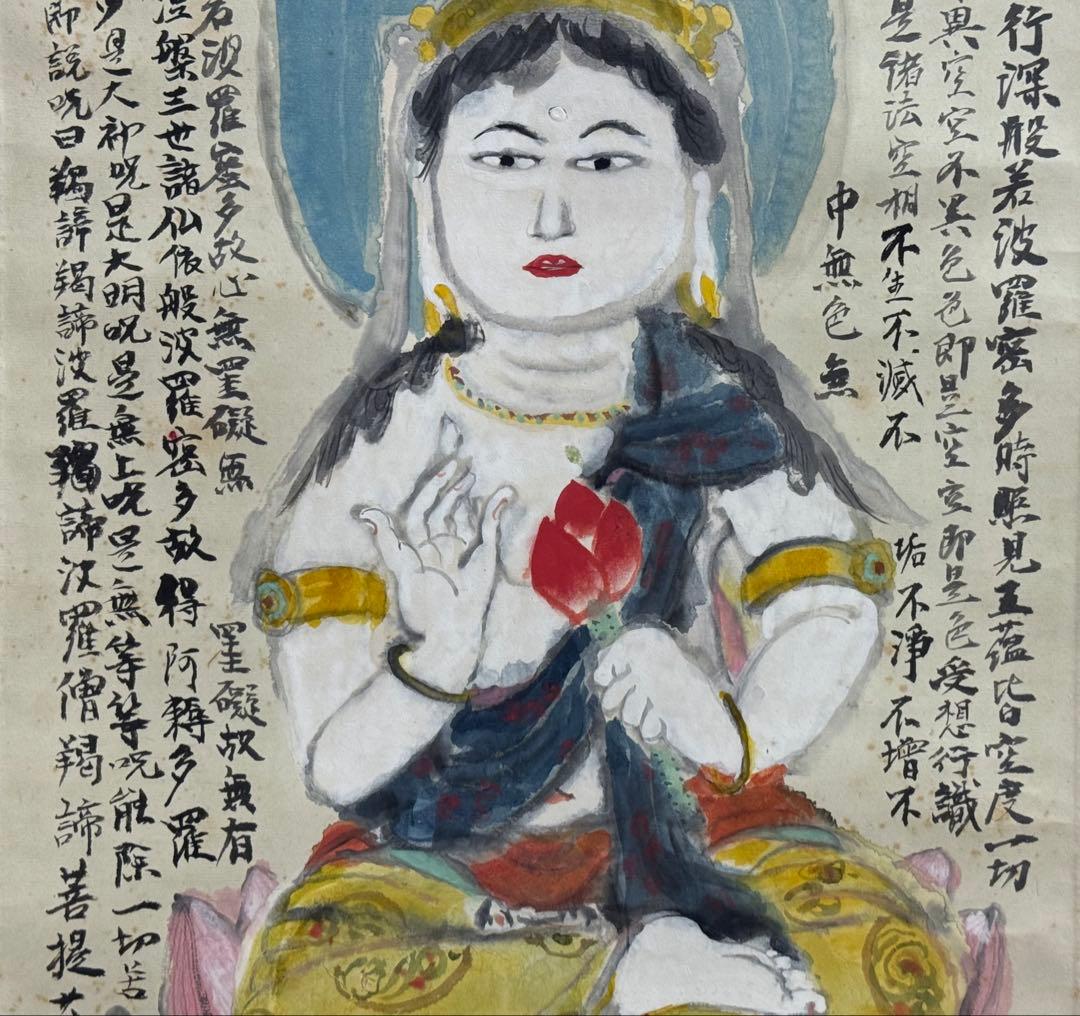 行深般若波羅密多時照見五蕴皆空度一切
異空空不異色色即是空空即是色受想行識
是諸法空相不生不滅不垢不淨不增不
中無色無
若波羅密多故心無罣礙無罣礙故無有
涅槃三世諸仏依般波羅密多故得阿耨多羅
多是大神呪是大明呪是無上呪是無等等呪能除一切苦
即説呪曰羯諦羯諦波羅羯諦波羅僧羯諦菩提